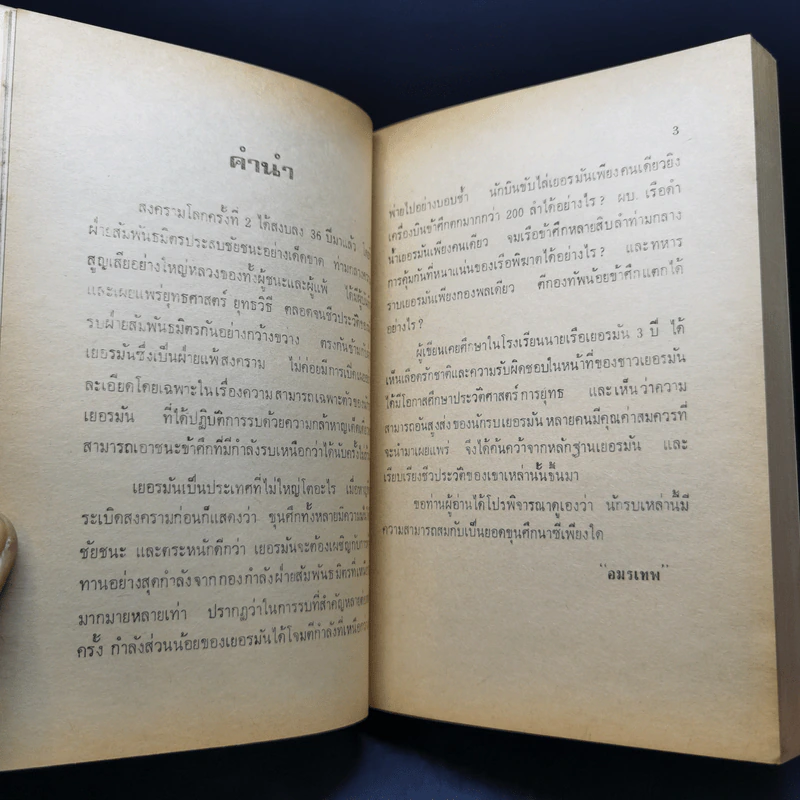 คำนำ
สงครามโลกครั้งที่ 2 ได้สงบลง 36 ปีมาแล้ว
ฝ่ายสัมพันธมิตรประสบชัยชนะอย่างเด็ดขาด ท่ามกลาง
สูญเสียอย่างใหญ่หลวงของทั้งผู้ชนะและผู้แพ้ ได้มีผู้
และเผยแพร่ยุทธศาสตร์ ยุทธวิธี ตลอดจนชีวประวัติ
รบฝ่ายสัมพันธมิตรกันอย่างกว้างขวาง ตรงกันข้ามกับ
เยอรมันซึ่งเป็นฝ่ายแพ้สงคราม ไม่ค่อยมีการเปิด
ละเอียดโดยเฉพาะในเรื่องความสามารถเฉพาะตัวของ
เยอรมัน ที่ได้ปฏิบัติการรบด้วยความกล้าหาญเด็ด
สามารถเอาชนะข้าศึกที่มีกำลังรบเหนือกว่าได้นับครั้งไม่
เยอรมันเป็นประเทศที่ไม่ใหญ่โตอะไร เมื่อ
ระเบิดสงครามก่อนก็แสดงว่า ขุนศึกทั้งหลายมีความ
ชัยชนะ และตระหนักดีกว่า เยอรมันจะต้องเผชิญกับการ
ทานอย่างสุดกำลังจากกองกำลังฝ่ายสัมพันธมิตรที่
มากมายหลายเท่า ปรากฏว่าในการรบที่สำคัญหลาย
ครั้ง กำลังส่วนน้อยของเยอรมันได้โจมตีกำลังที่เหนือ
3
พ่ายไปอย่างบอบช้ำ นักบินขับไล่เยอรมันเพียงคนเดียวยิง
เครื่องบินข้าศึกตกมากกว่า 200 ลำได้อย่างไร? ผบ. เรือดำ
น้ำเยอรมันเพียงคนเดียว จมเรือข้าศึกหลายสิบลำท่ามกลาง
การคุ้มกันที่หนาแน่นของเรือพิฆาตได้อย่างไร? และทหาร
ราบเยอรมันเพียงกองพลเดียว ตีกองทัพน้อยข้าศึกแตกได้
อย่างไร?
ผู้เขียนเคยศึกษาในโรงเรียนนายเรือเยอรมัน 3 ปี ได้
เห็นเลือดรักชาติและความรับผิดชอบในหน้าที่ของชาวเยอรมัน
ได้มีโอกาสศึกษาประวัติศาสตร์การยุทธ และเห็นว่าความ
สามารถอันสูงส่งของนักรบเยอรมันหลายคนมีคุณค่าสมควรที่
จะนำมาเผยแพร่ จึงได้ค้นคว้าจากหลักฐานเยอรมัน และ
เรียบเรียงชีวประวัติของเขาเหล่านั้นขึ้นมา
ขอท่านผู้อ่านได้โปรดพิจารณาดูเองว่า นักรบเหล่านี้มี
ความสามารถสมกับเป็นยอดขุนศึกนาซีเพียงใด
"อมรเทพ"